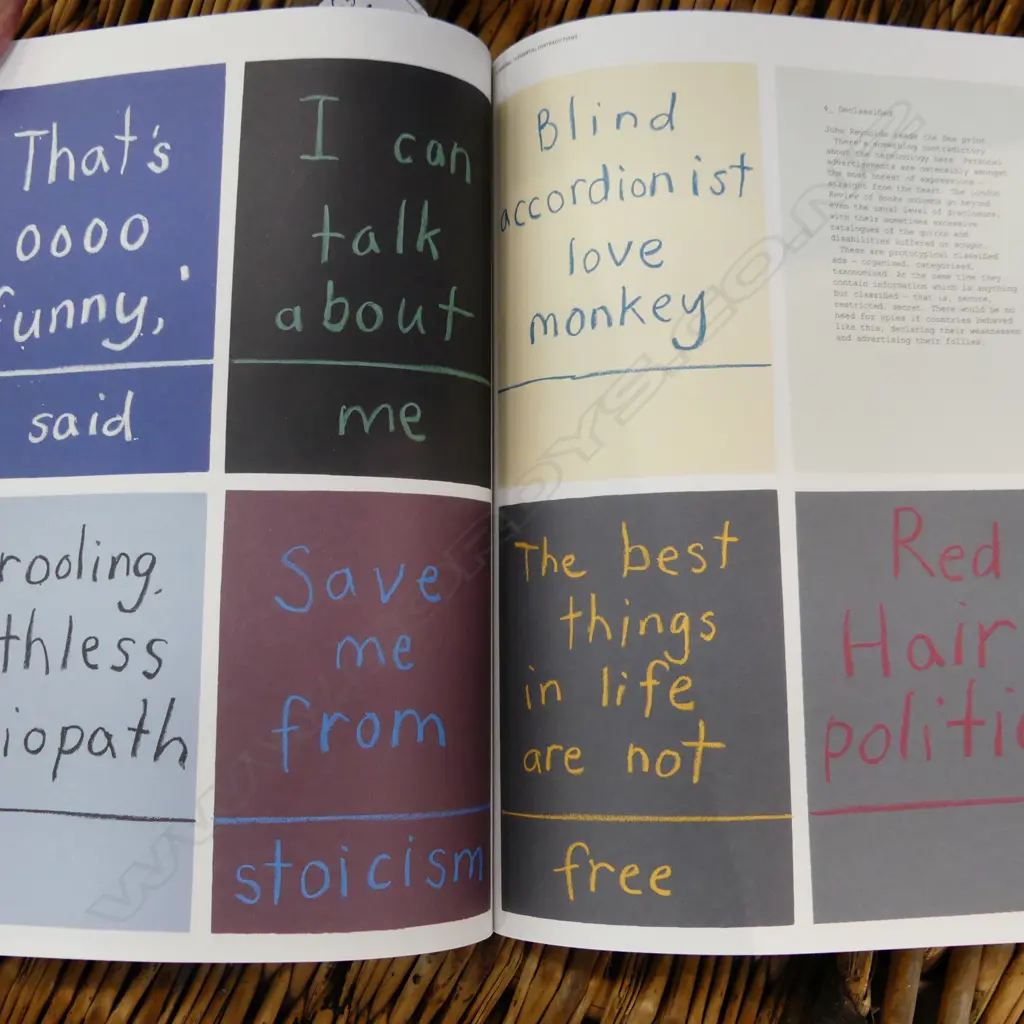 That's
oooo
funny,'
said
I can
talk
about
me
Blind
accordionist
love
monkey
4_ Declassified
John Reynolds reads the sea print.
There's something contradictory
about the terminology here. Personal
advertisements are ostensibly amongst
the most honest of expressions –
straight from the heart. The London
Review of Books columns go beyond
even the usual level of disclosure,
with their sometimes excessive
catalogues of the quirks and
disabilities suffered or sought.
These are prototypical classified
ads – organised, categorised,
taxonomised. At the same time they
contain information which is anything
but classified – that is, secure,
restricted, secret. There would be no
need for spies if countries behaved
like this, declaring their weaknesses
and advertising their follies.
rooling,
thless
iopath
Save
me
from
stoicism
The best
things
in life
are not
free
Red
Hair
politi